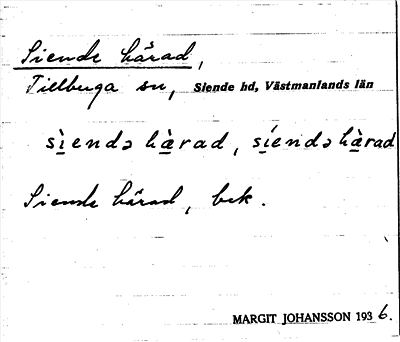 Siende härad,
Tillberga sn, Siende hd, Västmanlands län
sìendə hä̀rad, síendə hä̀rad
Siende härad, bek.
MARGIT JOHANSSON 1936.